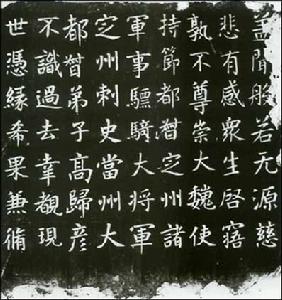 蓋聞般若无源慈
悲有感衆生啓寤
孰不尊崇大魏使
持節都督定州諸
軍事驃騎大將軍
定州刺史當州大
都督弟子高歸彥
不識過去幸覩現
世憑緣希果兼脩